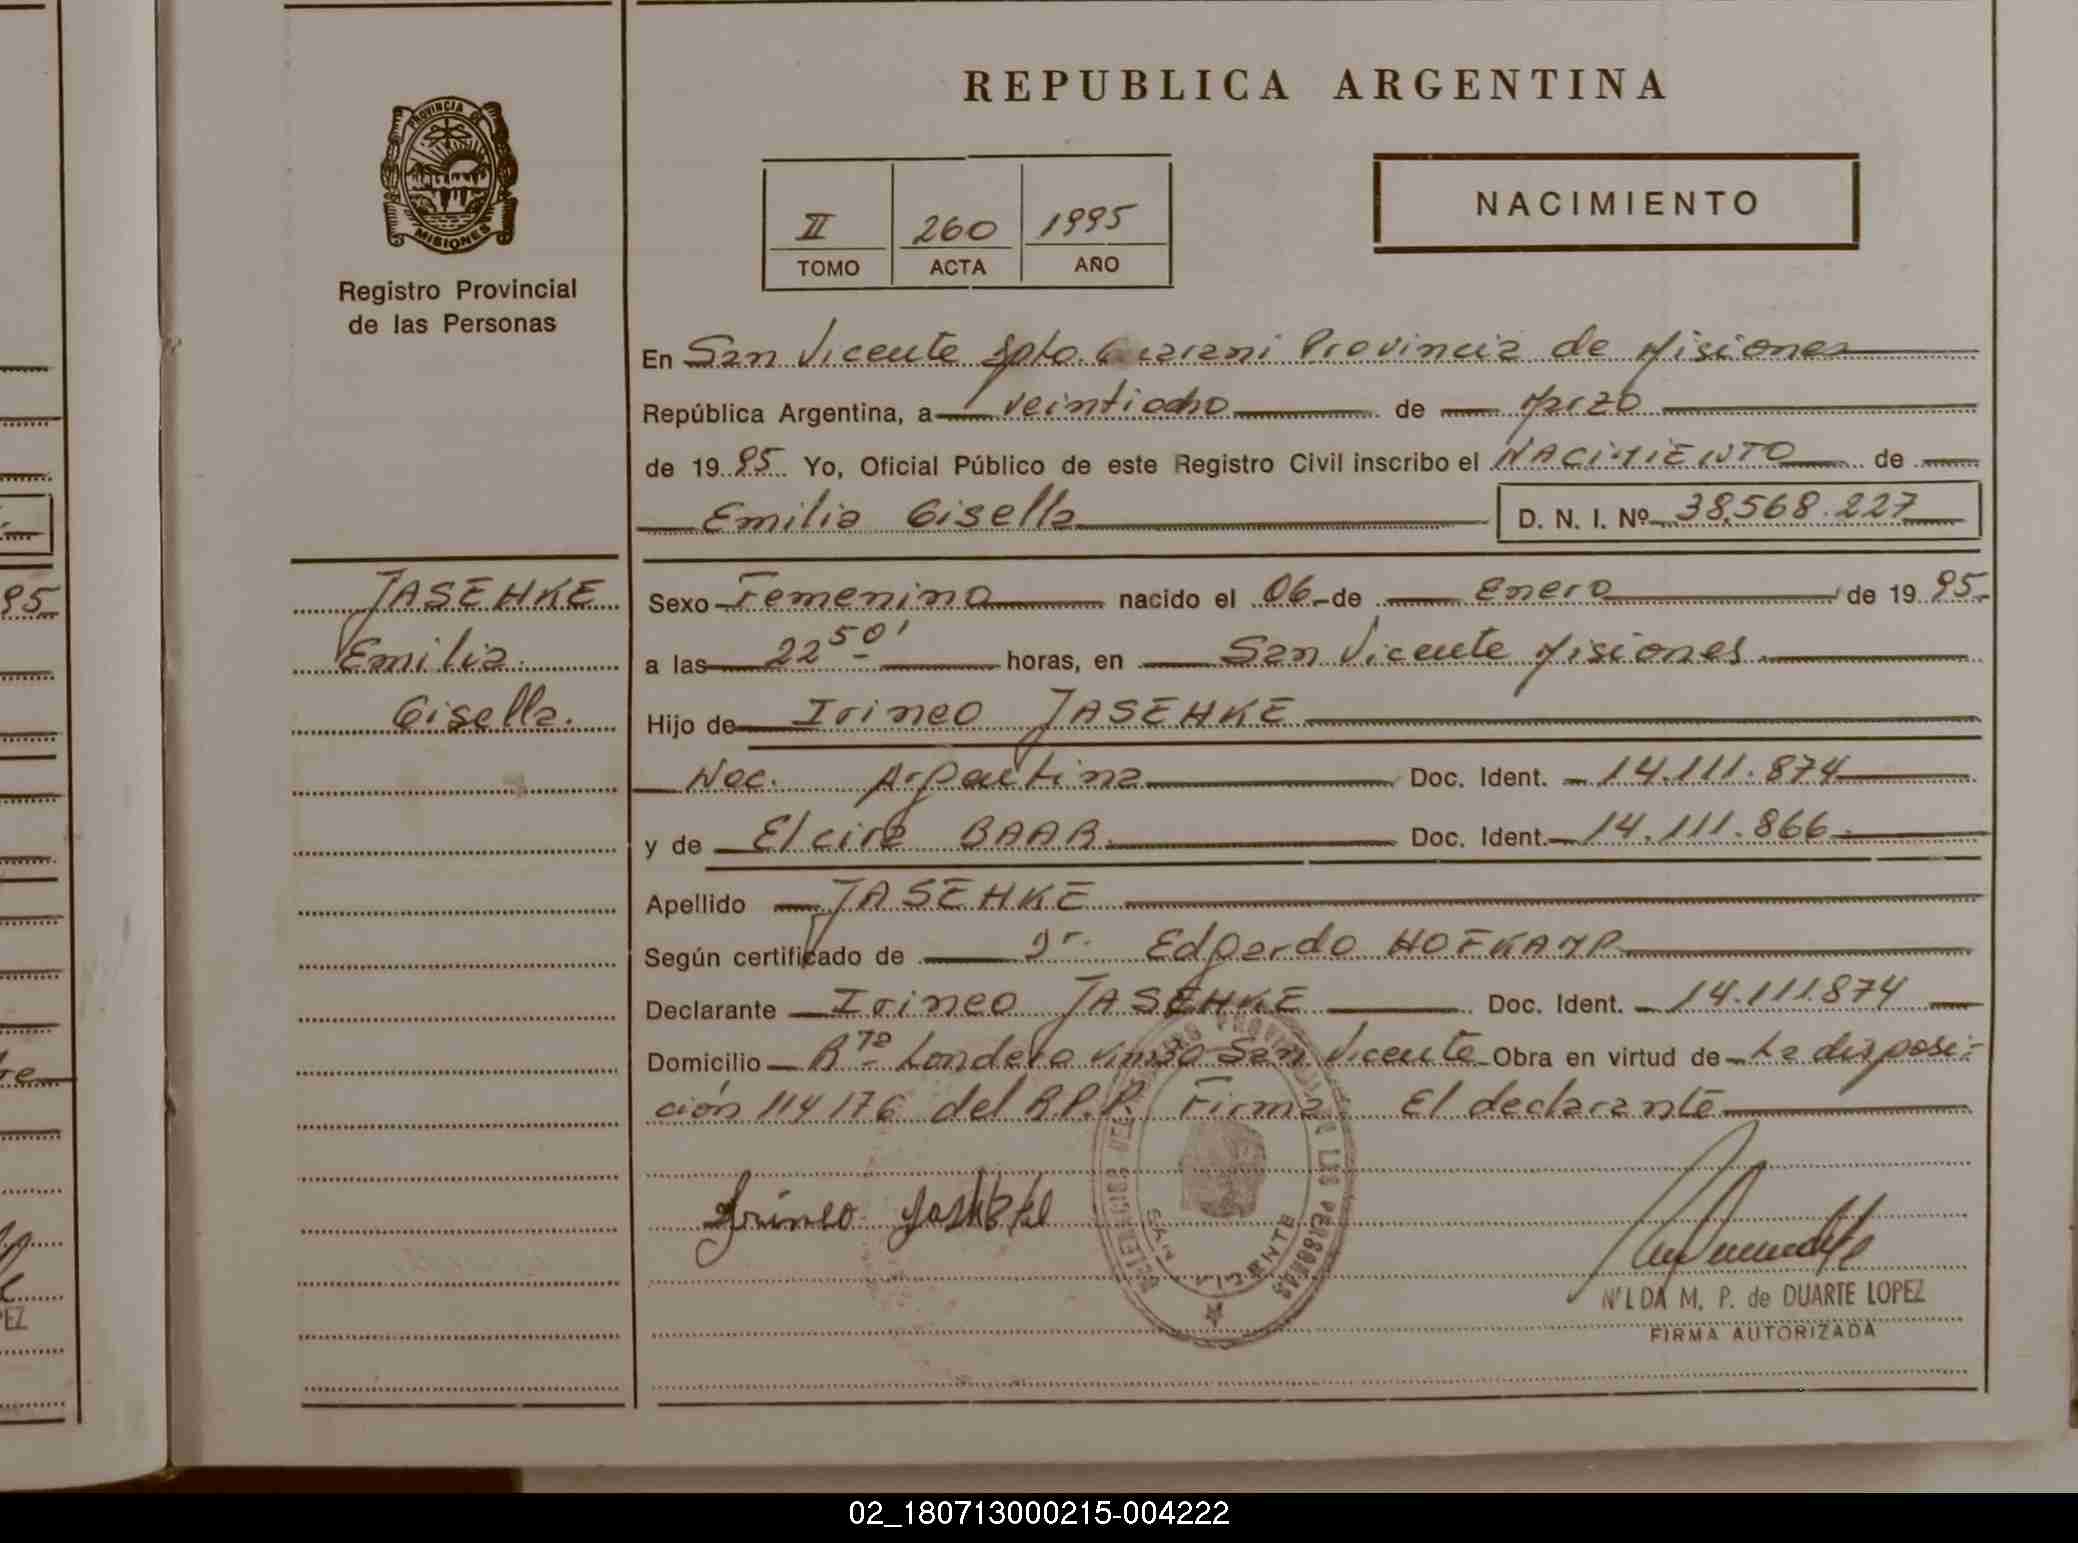 REPUBLICA ARGENTINA
PROVINCIA DE
MISIONES
Registro Provincial
de las Personas
II 260 1995
TOMO ACTA AÑO
NACIMIENTO
En San Vicente Dpto. Guarani Provincia de Misiones
República Argentina, a veintiocho de Marzo
de 19 95 Yo, Oficial Público de este Registro Civil inscribo el NACIMIENTO de
Emilia Gisella D. N. I. Nº 38.568.227
JASEHKE
Emilia
Gisella.
Sexo Femenino nacido el 06 de enero de 19 95
a las 22 50' horas, en San Vicente Misiones
Hijo de Irineo JASEHKE
Nac. Argentina Doc. Ident. 14.111.874
y de Elcira BAAR. Doc. Ident. 14.111.866.
Apellido JASEHKE
Según certificado de Dr. Edgardo HOFKAMP
Declarante Irineo JASEHKE Doc. Ident. 14.111.874
Domicilio Londero San Vicente Obra en virtud de La disposi-
ción 114176 del R.P.P. Firma El declarante
Irineo
SAN VICENTE
NILDA M. P. de DUARTE LOPEZ
FIRMA AUTORIZADA
95
PEZ
02_180713000215-004222